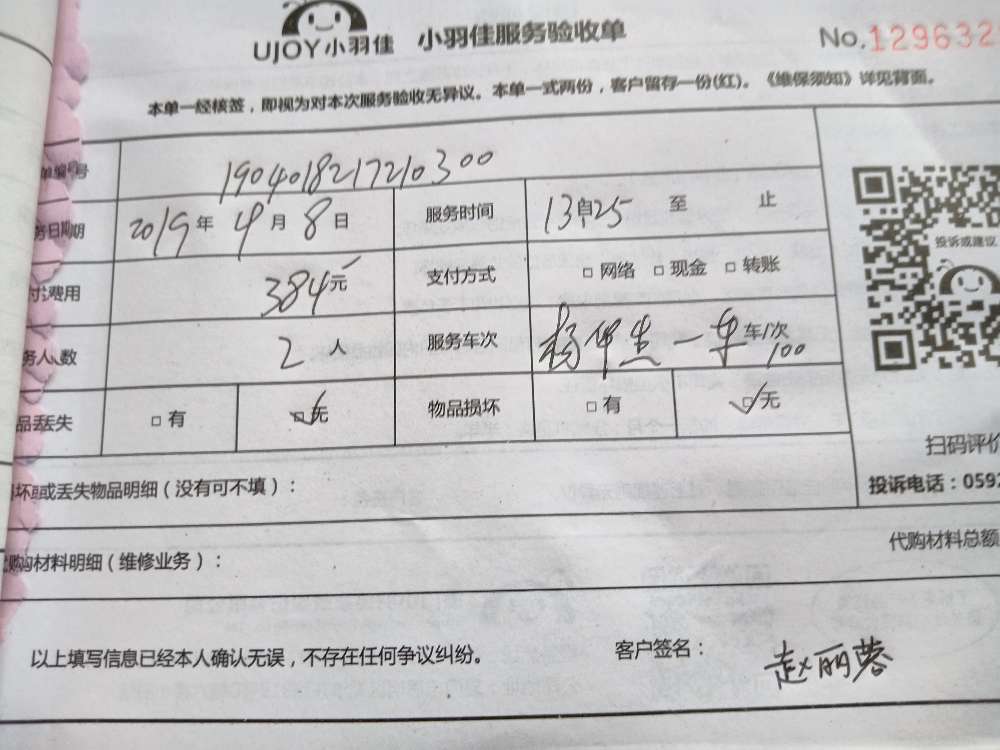 UJOY小羽佳 小羽佳服务验收单 No.129632
本单一经核签，即视为对本次服务验收无异议。本单一式两份，客户留存一份(红)。《维保须知》详见背面。
单编号 1904018217210300
务日期 2019年4月8日 服务时间 13:25 至 止
付费用 384元 支付方式 □网络 □现金 □转账
务人数 2人 服务车次 一车 车/次 100
品丢失 □有 □无 物品损坏 □有 □无
投诉或建议
扫码评价
投诉电话：0592
坏或丢失物品明细（没有可不填）：
购材料明细（维修业务）： 代购材料总额
以上填写信息已经本人确认无误，不存在任何争议纠纷。 客户签名： 赵丽蓉